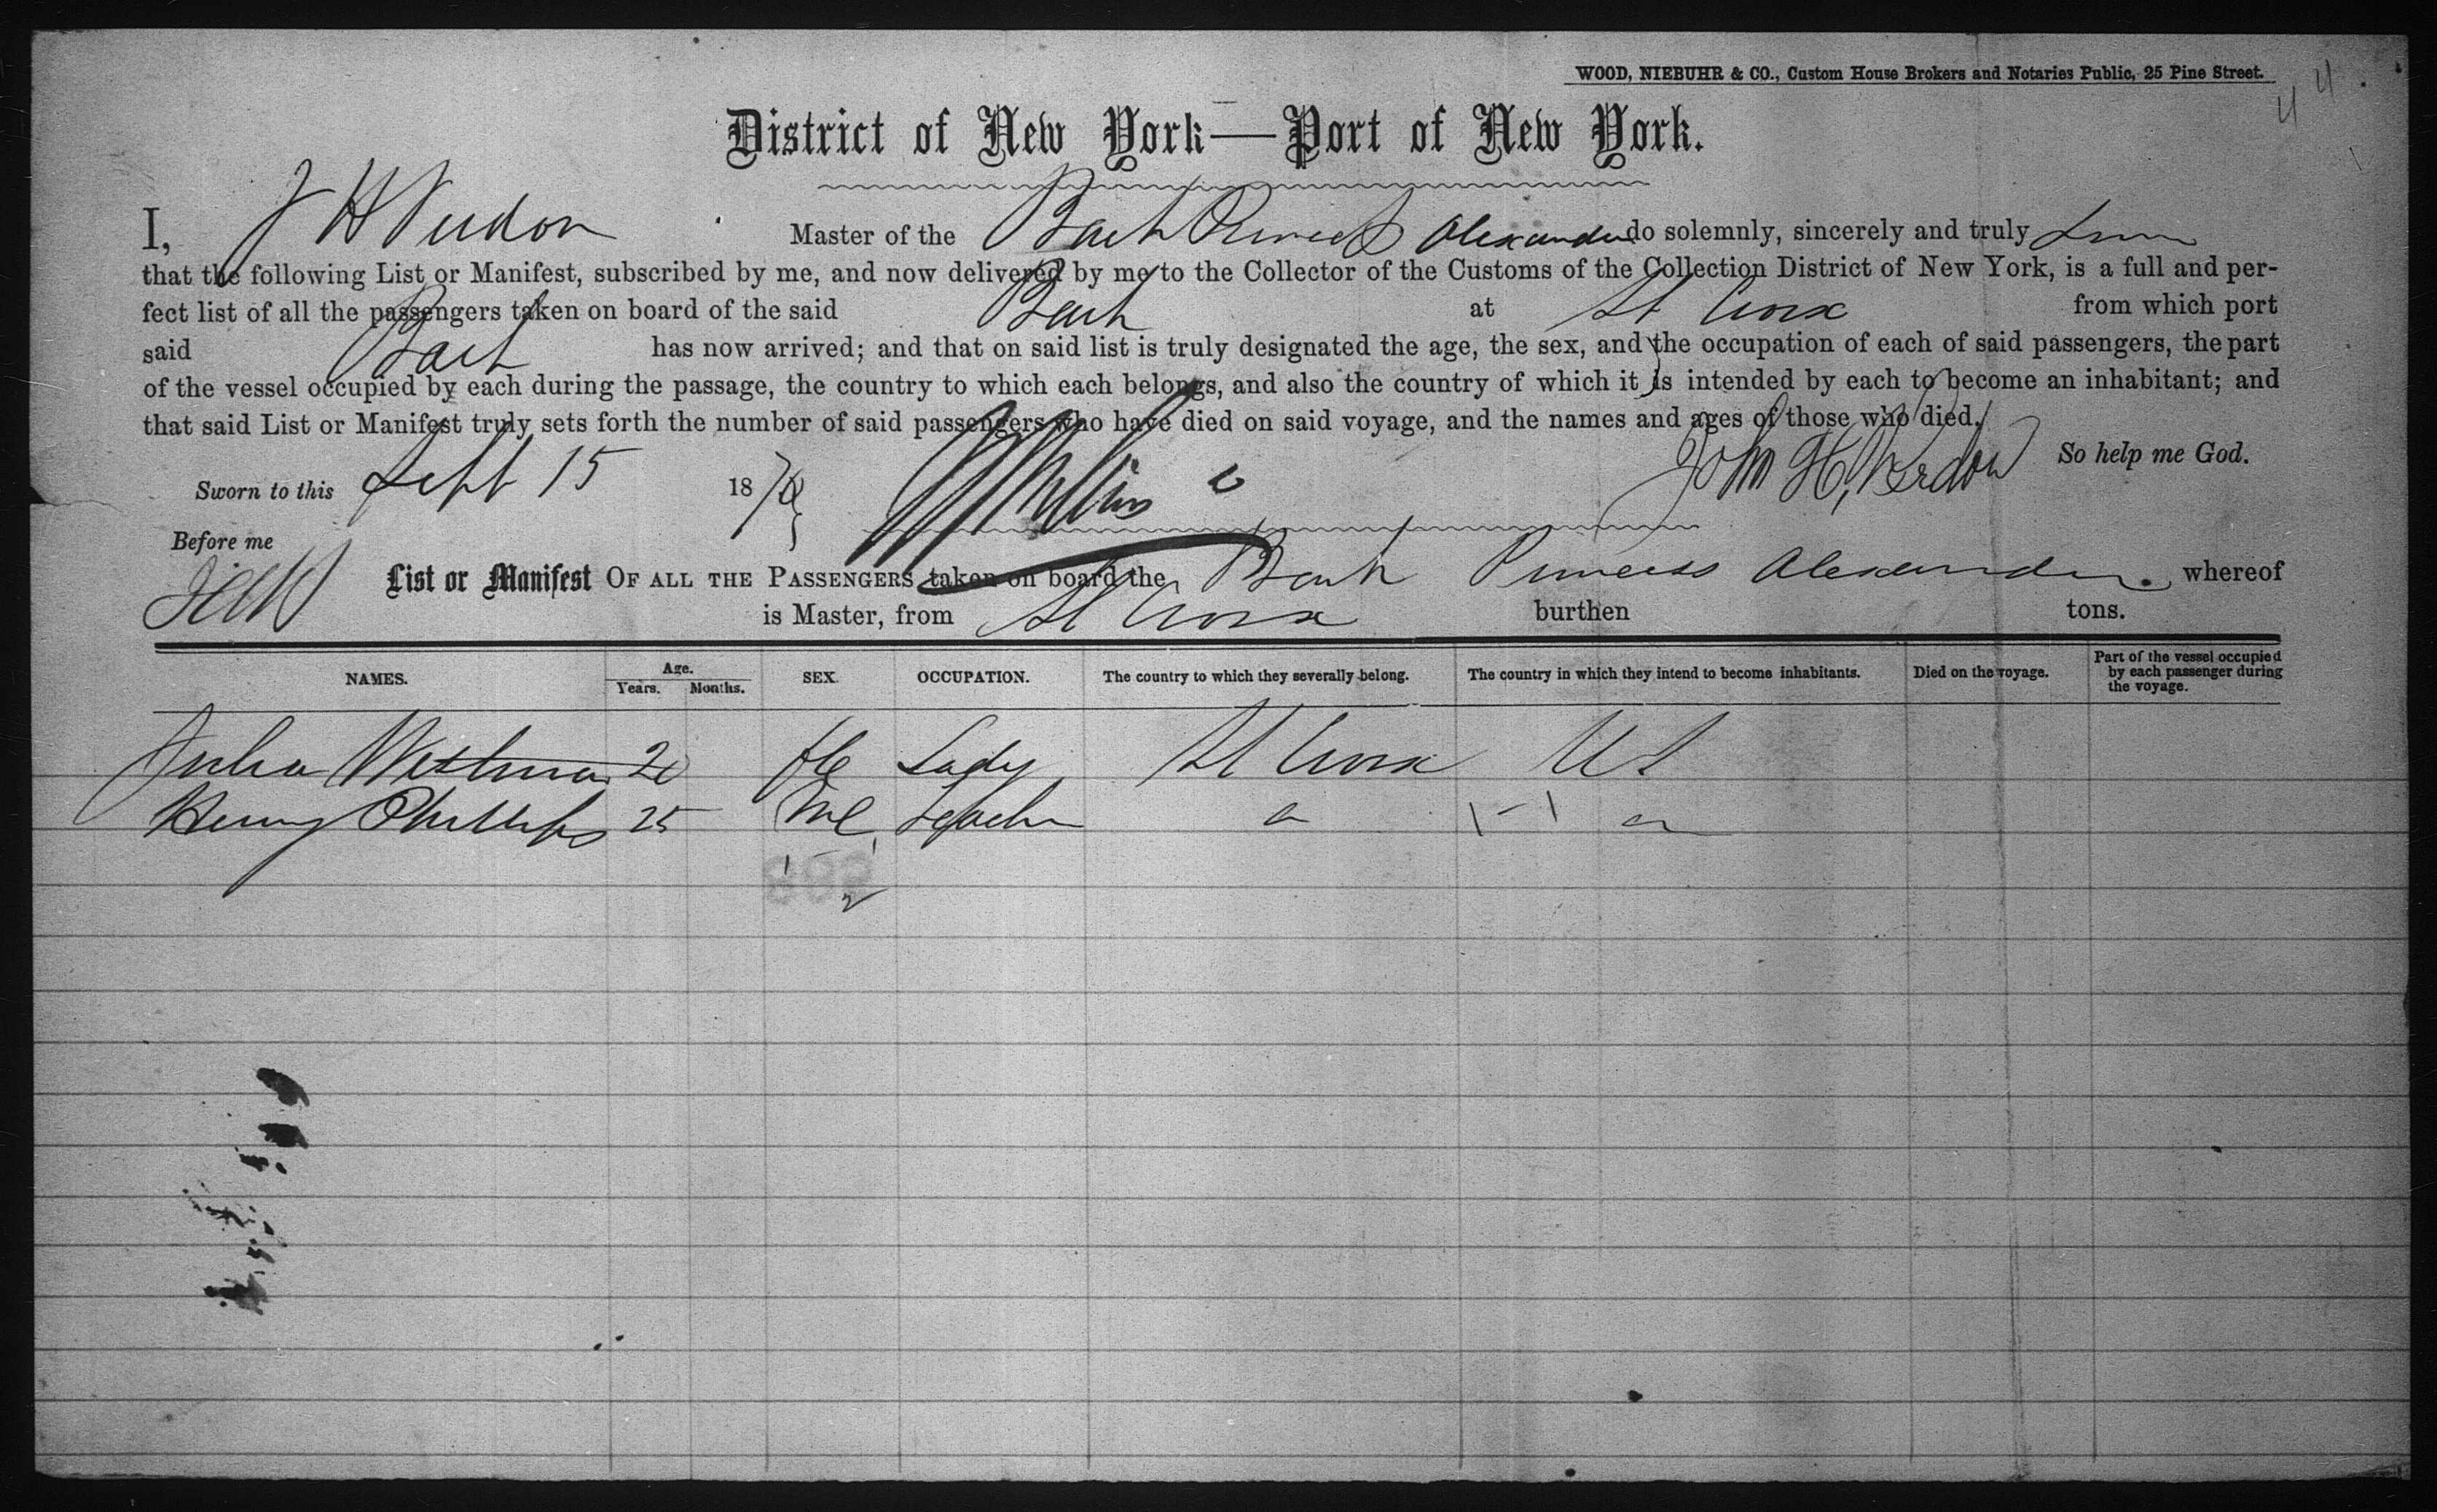 WOOD, NIEBUHR & CO., Custom House Brokers and Notaries Public, 25 Pine Street.
44
District of New York—Port of New York.
I, J H Verdon Master of the Bark Princess Alexander do solemnly, sincerely and truly swear
that the following List or Manifest, subscribed by me, and now delivered by me to the Collector of the Customs of the Collection District of New York, is a full and per-
fect list of all the passengers taken on board of the said Bark at St Croix from which port
said Bark has now arrived; and that on said list is truly designated the age, the sex, and the occupation of each of said passengers, the part
of the vessel occupied by each during the passage, the country to which each belongs, and also the country of which it is intended by each to become an inhabitant; and
that said List or Manifest truly sets forth the number of said passengers who have died on said voyage, and the names and ages of those who died.
So help me God.
Sworn to this Sept 15 187 John H. Verdon
Before me
List or Manifest OF ALL THE PASSENGERS taken on board the Bark Princess Alexander whereof
is Master, from St Croix burthen tons.
NAMES. Age. Years. Months. SEX. OCCUPATION. The country to which they severally belong. The country in which they intend to become inhabitants. Died on the voyage. Part of the vessel occupied by each passenger during the voyage.
Julia 20 fe Lady St Croix US
Henry Phillips 25 me Teacher
2